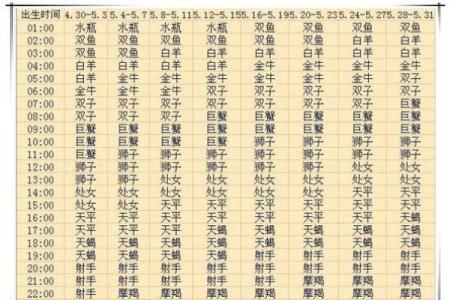 出生时间 4.30-5.3 5.4-5.7 5.8-5.11 5.12-5.15 5.16-5.19 5.20-5.23 5.24-5.27 5.28-5.31
01:00 水瓶 水瓶 水瓶 水瓶 双鱼 双鱼 双鱼 双鱼
02:00 双鱼 双鱼 双鱼 双鱼 双鱼 双鱼 白羊 白羊
03:00 双鱼 双鱼 白羊 白羊 白羊 白羊 白羊 白羊
04:00 白羊 白羊 白羊 白羊 金牛 金牛 金牛 金牛
05:00 白羊 金牛 金牛 金牛 金牛 金牛 金牛 双子
06:00 金牛 金牛 金牛 双子 双子 双子 双子 双子
07:00 双子 双子 双子 双子 双子 双子 双子 巨蟹
08:00 双子 双子 双子 巨蟹 巨蟹 巨蟹 巨蟹 巨蟹
09:00 巨蟹 巨蟹 巨蟹 巨蟹 巨蟹 巨蟹 巨蟹 巨蟹
10:00 巨蟹 巨蟹 巨蟹 巨蟹 巨蟹 狮子 狮子 狮子
11:00 巨蟹 狮子 狮子 狮子 狮子 狮子 狮子 狮子
12:00 狮子 狮子 狮子 狮子 狮子 狮子 处女 处女
13:00 狮子 狮子 狮子 处女 处女 处女 处女 处女
14:00 处女 处女 处女 处女 处女 处女 天平 天平
15:00 处女 处女 天平 天平 天平 天平 天平 天平
16:00 天平 天平 天平 天平 天平 天平 天平 天蝎
17:00 天平 天平 天平 天平 天蝎 天蝎 天蝎 天蝎
18:00 天蝎 天蝎 天蝎 天蝎 天蝎 天蝎 天蝎 天蝎
19:00 天蝎 天蝎 天蝎 天蝎 射手 射手 射手 射手
20:00 射手 射手 射手 射手 射手 射手 射手 射手
21:00 射手 射手 射手 射手 射手 射手 摩羯 摩羯
22:00 射手 摩羯 摩羯 摩羯 摩羯 摩羯 摩羯 摩羯